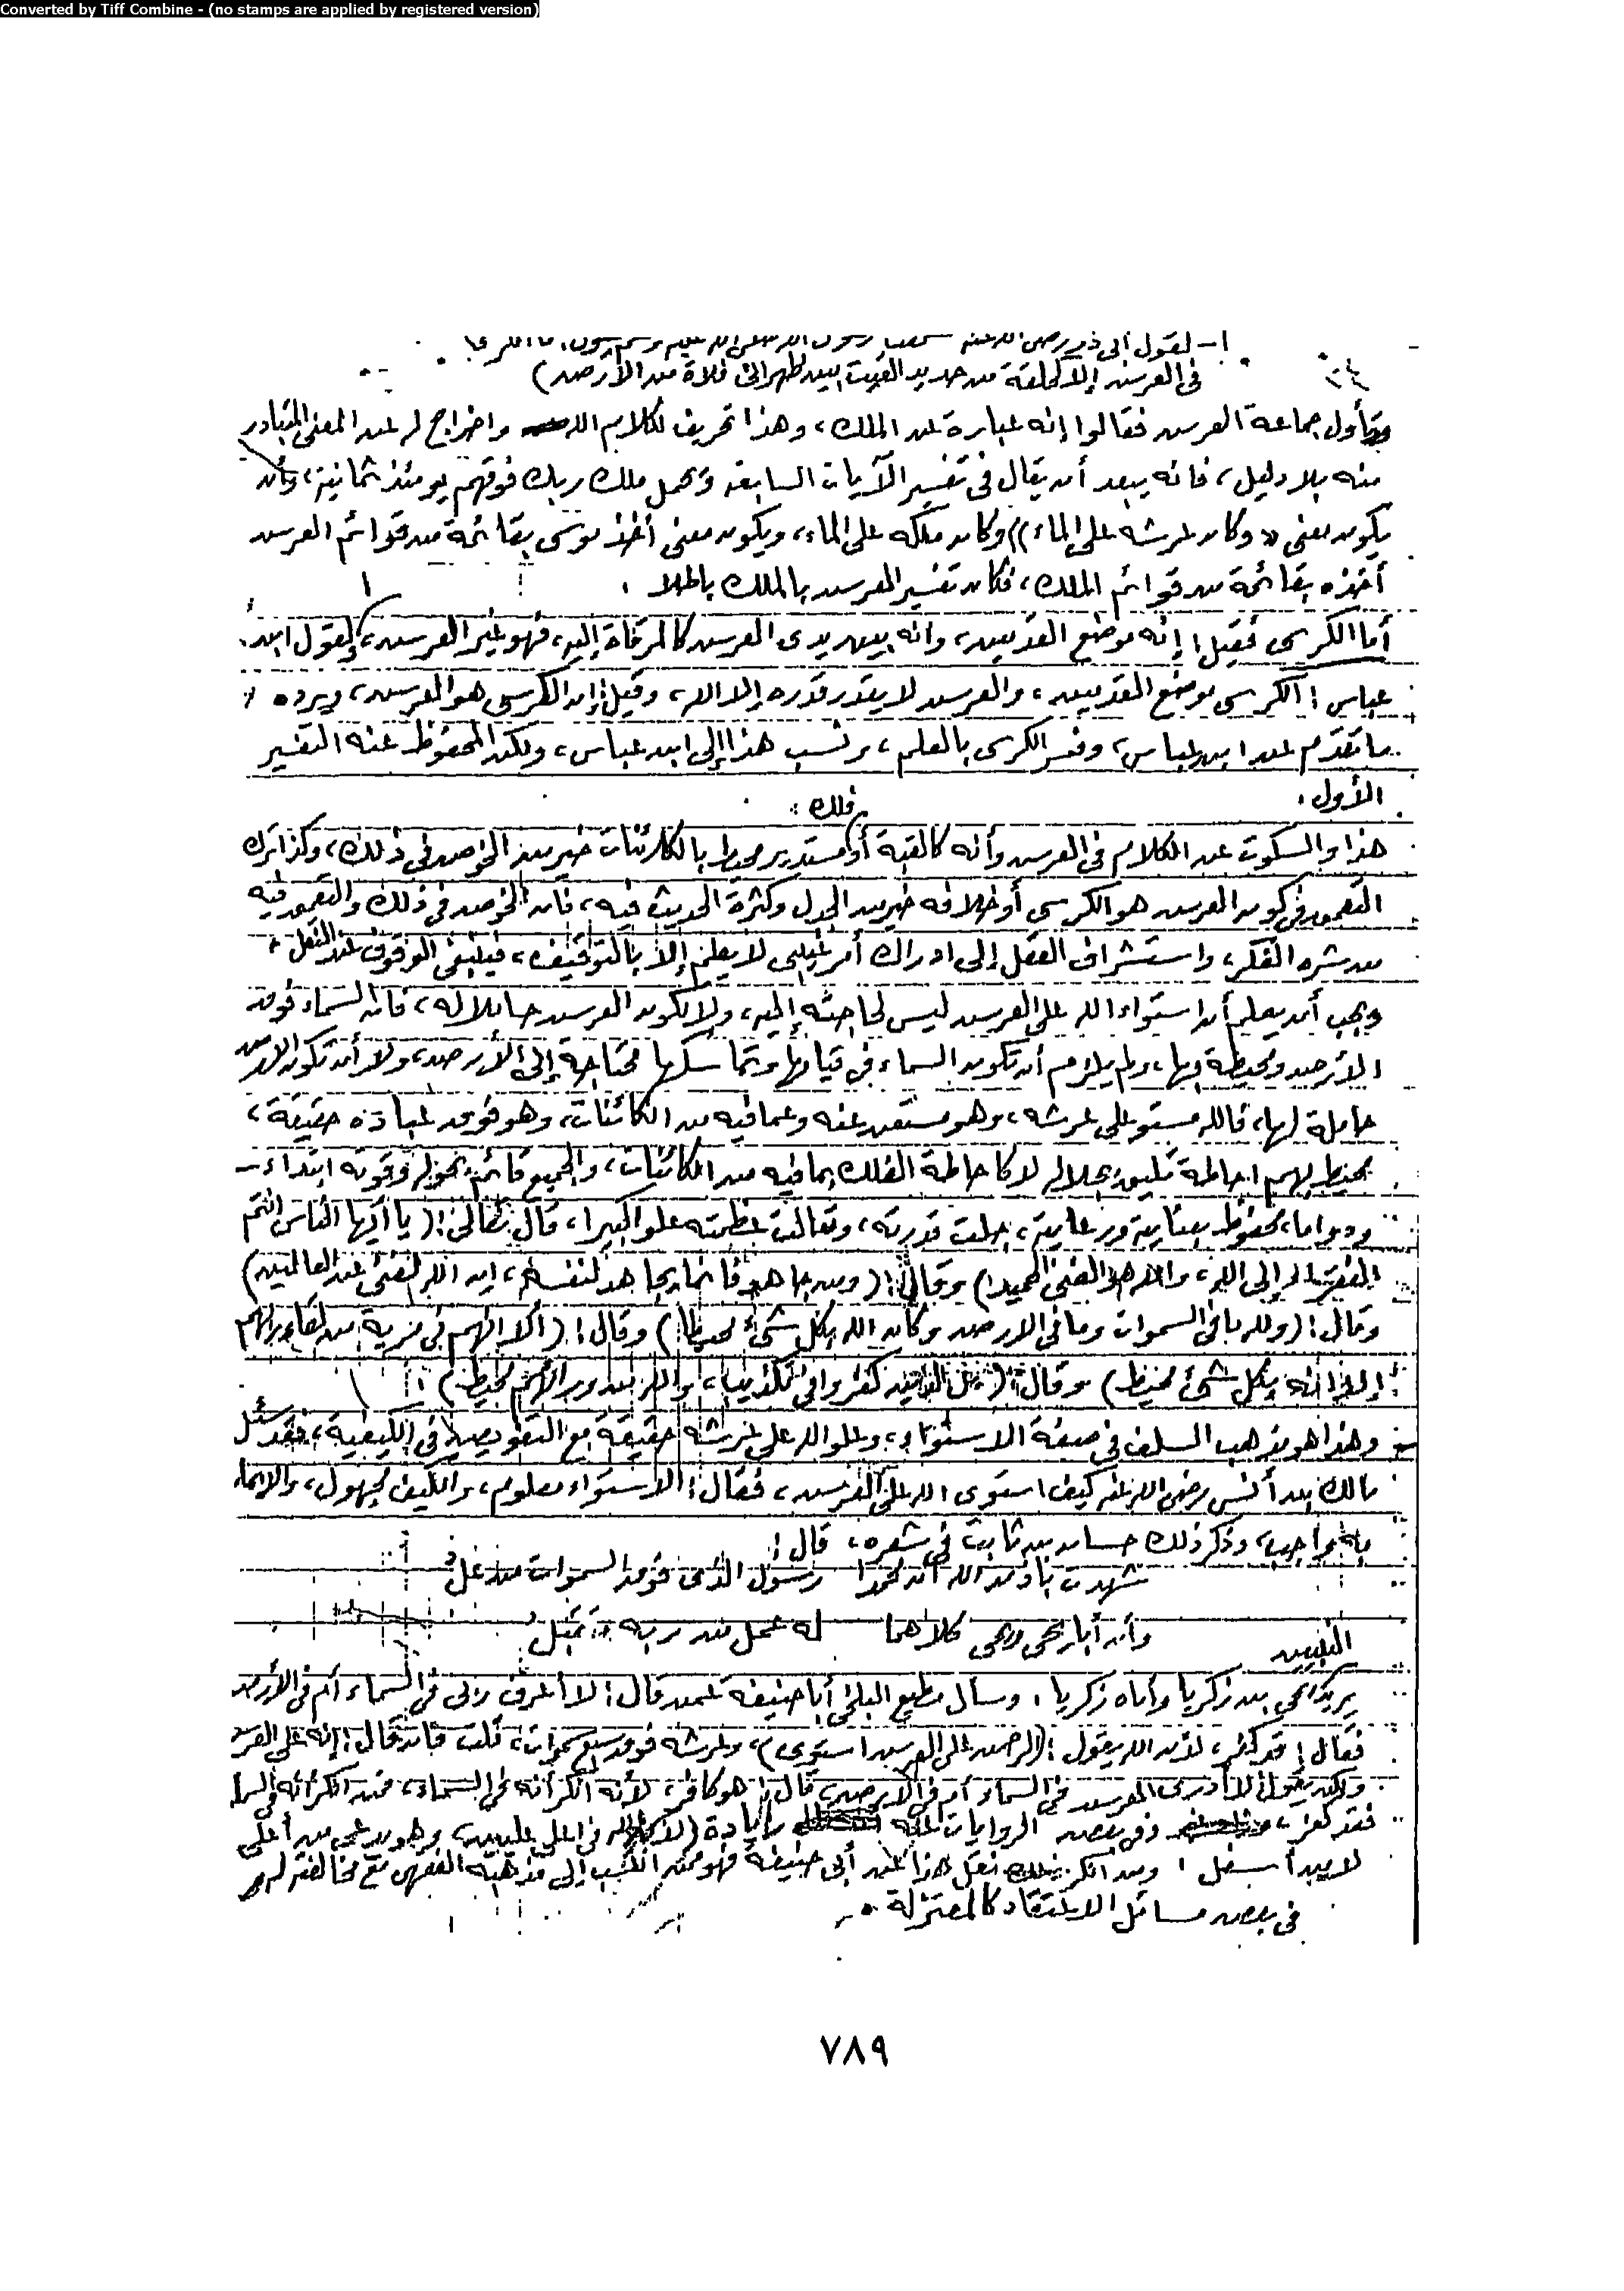 Converted by Tiff Combine - (no stamps are applied by registered version)
١- لقول أبى ذر رضى الله عنه سمعت رسول الله صلى الله عليه وسلم يقول: ما الكرسى
فى العرش إلا كحلقة من حديد ألقيت بين ظهرانى فلاة من الأرض)
وتأول جماعة العرش فقالوا إنه عبارة عن الملك، وهذا تحريف لكلام الله واخراج له عن المعنى المتبادر
منه بلا دليل، فانه يبعد أن يقال فى تفسير الآيات السابقة ويحمل ملك ربك فوقهم يومئذ ثمانية، وأن
يكون معنى « وكان عرشه على الماء)) وكان ملكه على الماء، ويكون معنى أخذ موسى بقائمة من قوائم العرش
أخذه بقائمة من قوائم الملك، فكان تفسير العرش بالملك باطلا .
أما الكرسى فقيل: إنه موضع القدمين، وانه بين يدى العرش كالمرقاة إليه، فهو غير العرش، لقول ابن
عباس: الكرسى موضع القدمين، والعرش لا يقدر قدره إلا الله، وقيل: إن الكرسى هو العرش، ويرده
ما تقدم عن ابن عباس، وفسر الكرسى بالعلم، ونسب هذا إلى ابن عباس، ولكن المحفوظ عنه التفسير
الأول.
فلك
هذا والسكوت عن الكلام فى العرش وأنه كالقبة أو مستدير محيط بالكائنات خير من الخوض فى ذلك، وكذا ترك
التعمق فى كون العرش هو الكرسى أو خلافه خير من الجدل وكثرة الحديث فيه، فان الخوض فى ذلك والتعمق فيه
من شره الفكر، واستشراف العقل إلى ادراك أمر غيبى لا يعلم إلا بالتوقيف، فينبغى الوقوف عند النقل.
ويجب أن يعلم أن استواء الله على العرش ليس لحاجته إليه، ولا يكون العرش حاملا له، فان السماء فوق
الأرض ومحيطة بها، ولم يلزم أن تكون السماء فى قيامها وتماسكها محتاجة إلى الأرض، ولا أن تكون الأرض
حاملة لها، فالله مستو على عرشه، وهو مستغن عنه وعما فيه من الكائنات، وهو فوق عباده حقيقة،
محيط بهم احاطة تليق بجلاله لا كاحاطة الفلك بما فيه من الكائنات، والجميع قائم بحوله وقوته ابتداء
ودواما، محفوظ بعنايته ورعايته، جلت قدرته، وتعالت عظمته علوا كبيرا، قال تعالى: (يا أيها الناس أنتم
الفقراء إلى الله، والله هو الغنى الحميد) وقال: (ومن جاهد فانما يجاهد لنفسه، إن الله لغنى عن العالمين)
وقال: (ولله ما فى السموات وما فى الارض وكان الله بكل شىء محيطا) وقال: (ألا انهم فى مرية من لقاء ربهم
ألا انه بكل شىء محيط) وقال: (بل الذين كفروا فى تكذيب، والله من ورائهم محيط) .
وهذا هو مذهب السلف فى صفة الاستواء، وعلو الله على عرشه حقيقة مع التفويض فى الكيفية، فقد سئل
مالك بن أنس رضى الله عنه كيف استوى الله على العرش، فقال: الاستواء معلوم، والكيف مجهول، والايمان
به واجب، وذكر ذلك حسان بن ثابت فى شعره، قال:
شهدت باذن الله أن محمدا رسول الذى فوق السموات من عل
وأن أبا يحيى ويحيى كلاهما له عمل من ربه متقبل
النبيين
يريد يحيى بن زكريا وأباه زكريا . وسأل مطيع البلخى أبا حنيفة عمن قال: لا أعرف ربى فى السماء أم فى الأرض
فقال: قد كفر، لأن الله يقول: (الرحمن على العرش استوى)، وعرشه فوق سبع سموات، قلت فان قال: إنه على العرش
ولكن يقول: لا أدرى العرش فى السماء أم فى الارض، قال: هو كافر، لأنه أنكر أنه فى السماء، فمن انكر أنه فى السماء
فقد كفر، وفى بعض الروايات عنه زيادة (لأن الله فى أعلى عليين، وهو يدعى من أعلى
لا من أسفل . ومن أنكر نقل هذا عن أبى حنيفة فهو ممن انتسب إلى مذهبه الفقهى مع مخالفته له
فى بعض مسائل الاعتقاد كالمعتزلة .
٧٨٩